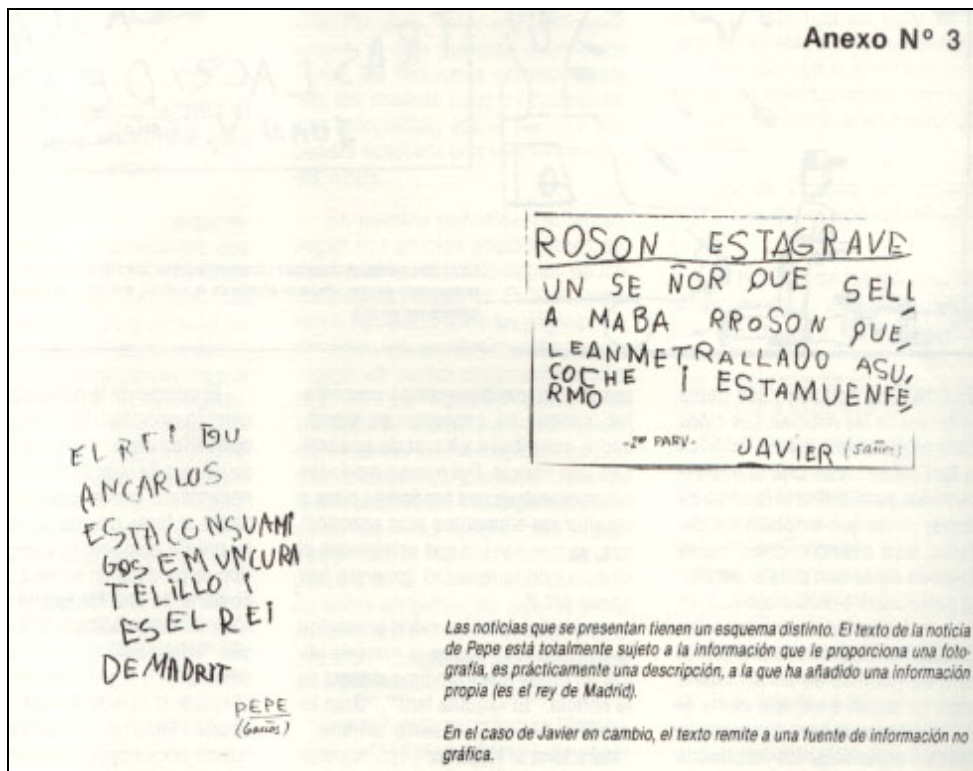 Anexo Nº 3
ROSON ESTAGRAVE
UN SE ÑOR QUE SELI
A MABA RROSON QUE,
LEANMETRALLADO ASU,
COCHE I ESTAMUENFE,
RMO
-2º PARV-
JAVIER (5años)
EL REI
ANCARLOS
ESTA CONSUAMI
GOS EM UNCURA
ELILLO I
ES EL REI
DE MADRIT
PEPE
(6años)
Las noticias que se presentan tienen un esquema distinto. El texto de la noticia
de Pepe está totalmente sujeto a la información que le proporciona una foto-
grafía, es prácticamente una descripción, a la que ha añadido una información
propia (es el rey de Madrid).
En el caso de Javier en cambio, el texto remite a una fuente de información no
gráfica.